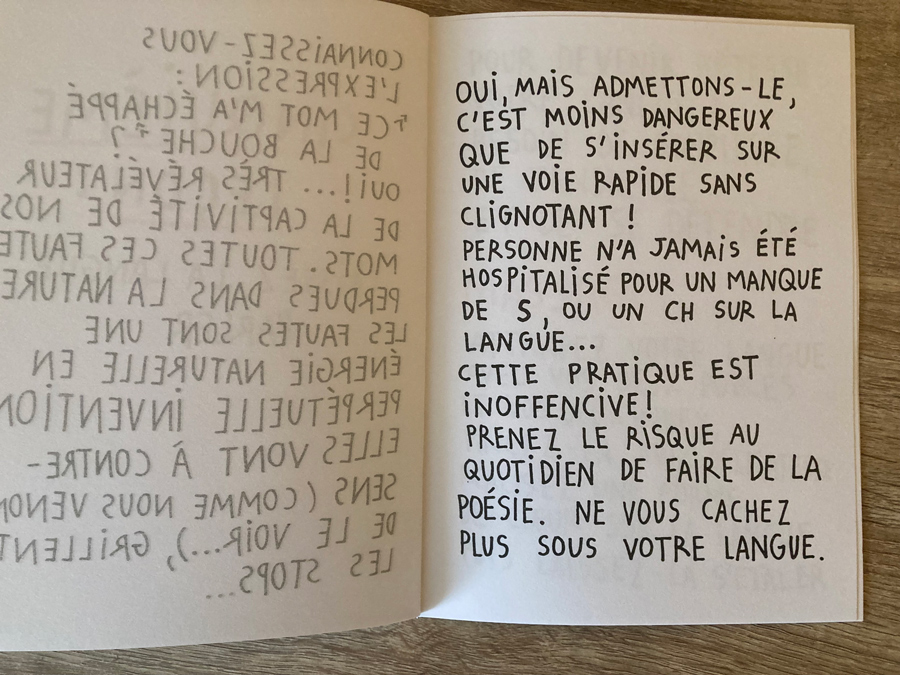 CONNAISSEZ-VOUS
L'EXPRESSION :
"CE MOT M'A ÉCHAPPÉ
DE LA BOUCHE" ?
OUI !... TRÈS RÉVÉLATEUR
DE LA CAPTIVITÉ DE NOS
MOTS. TOUTES CES FAUTE
PERDUES DANS LA NATURE
LES FAUTES SONT UNE
ÉNERGIE NATURELLE EN
PERPÉTUELLE INVENTION
ELLES VONT À CONTRE-
SENS (COMME NOUS VENON
DE LE VOIR...), GRILLENT
LES STOPS...
OUI, MAIS ADMETTONS-LE,
C'EST MOINS DANGEREUX
QUE DE S'INSÉRER SUR
UNE VOIE RAPIDE SANS
CLIGNOTANT !
PERSONNE N'A JAMAIS ÉTÉ
HOSPITALISÉ POUR UN MANQUE
DE S, OU UN CH SUR LA
LANGUE...
CETTE PRATIQUE EST
INOFFENCIVE !
PRENEZ LE RISQUE AU
QUOTIDIEN DE FAIRE DE LA
POÉSIE. NE VOUS CACHEZ
PLUS SOUS VOTRE LANGUE.